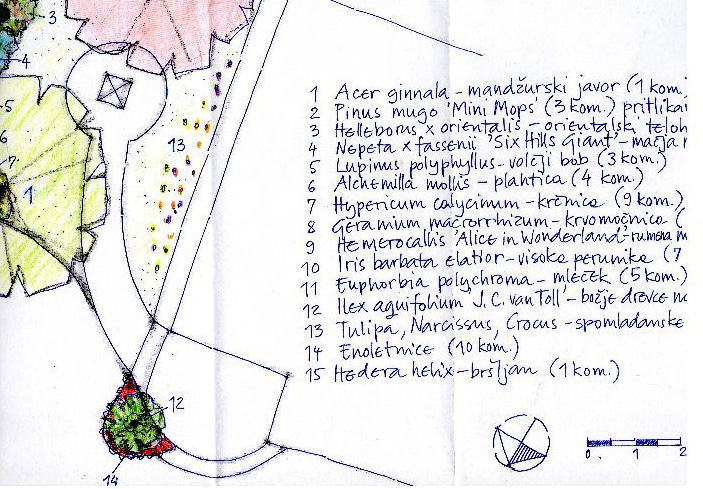 3
4
5
6
7
1
13
12
14
1 Acer ginnala - mandžurski javor (1 kom.
2 Pinus mugo 'Mini Mops' (3 kom.) pritlikav
3 Helleborus x orientalis - orientalski teloh
4 Nepeta x fassenii 'Six Hills Giant' - mačja
5 Lupinus polyphyllus - volčji bob (3 kom.)
6 Alchemilla mollis - plahtica (4 kom.)
7 Hypericum calycinum - krčnica (9 kom.)
8 Geramium mačrorrhizum - krvomočnica (
9 Hemerocallis 'Alice in Wonderland' - rumena m
10 Iris barbata elatior - visoke perunike (7
11 Euphorbia polychroma - mleček (5 kom.)
12 Ilex aquifolium 'J.C. van Toll' - božje drevce
13 Tulipa, Narcissus, Crocus - spomladanske
14 Enoletnice (10 kom.)
15 Hedera helix - bršljan (1 kom.)
0. 1 2